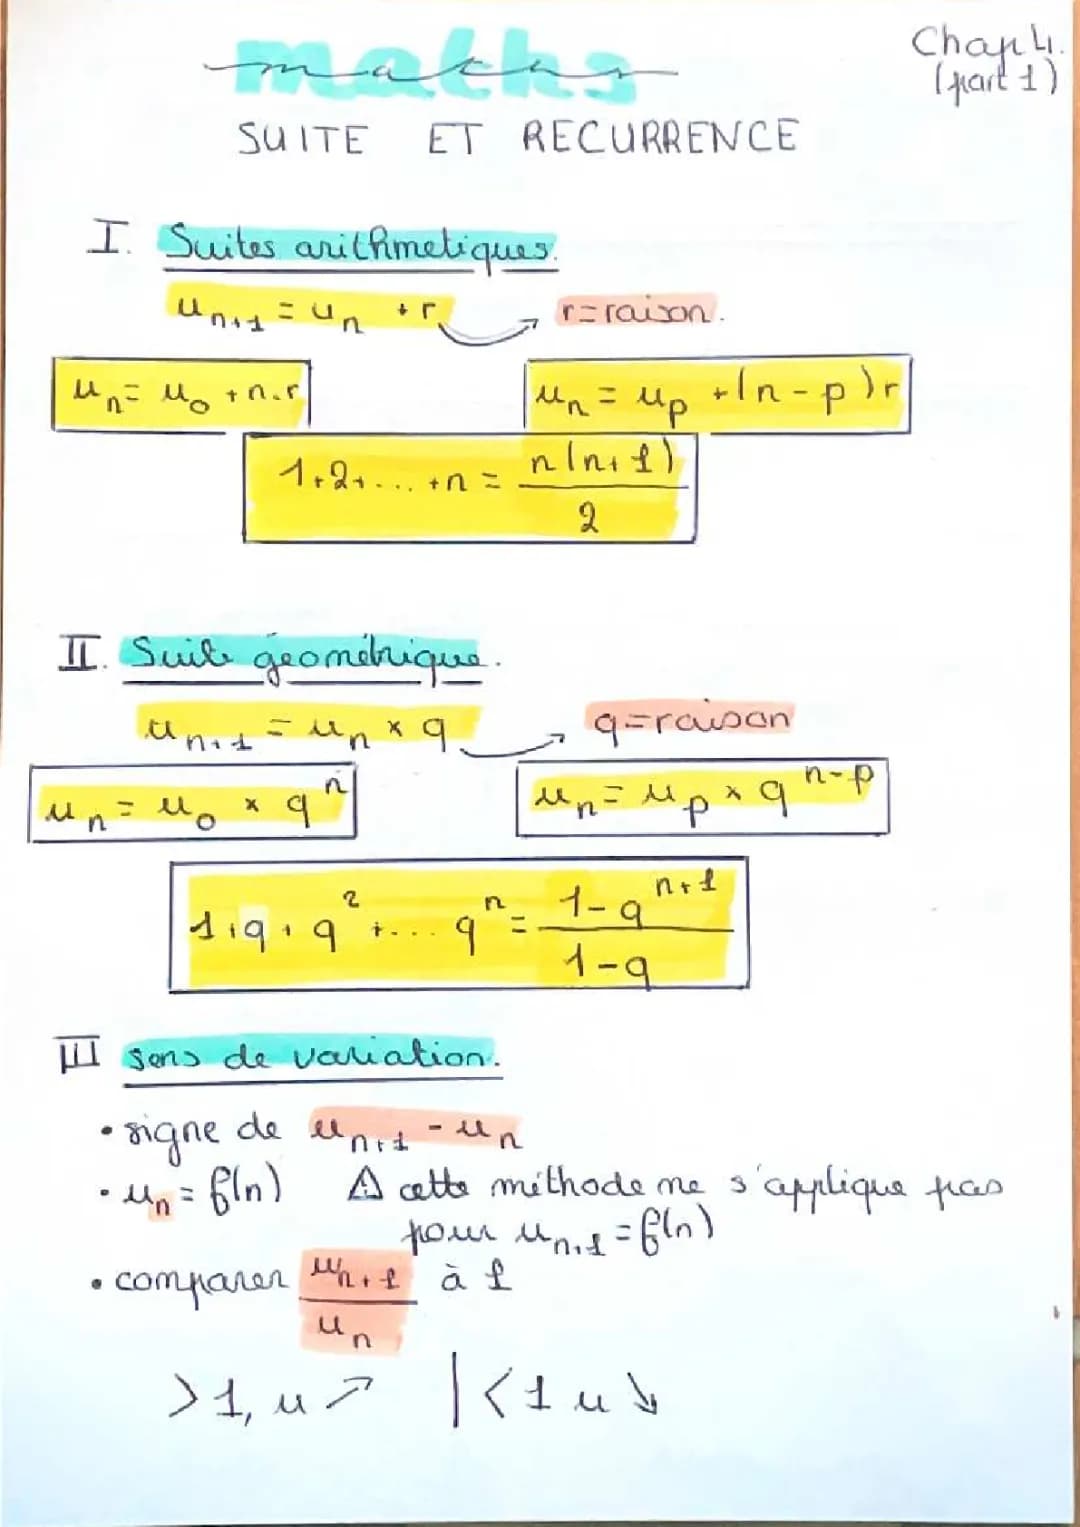 maths
Chap 4.
(part 1)
SUITE ET RECURRENCE
I. Suites arithmetiques.
u_{n+1} = u_n + r
r = raison.
u_n = u_0 + n.r
u_n = u_p + (n - p)r
1+2+... +n = \frac{n(n+1)}{2}
II. Suite géométrique.
u_{n+1} = u_n × q
q = raison
u_n = u_0 × q^n
u_n = u_p × q^{n-p}
1+q+q^2+... q^n = \frac{1-q^{n+1}}{1-q}
III sens de variation.
• signe de u_{n+1} - u_n
• u_n = f(n) ⚠ cette méthode ne s'applique pas
pour u_{n+1} = f(n)
• comparer \frac{u_{n+1}}{u_n} à 1
>1, u ↗ | <1 u ↘